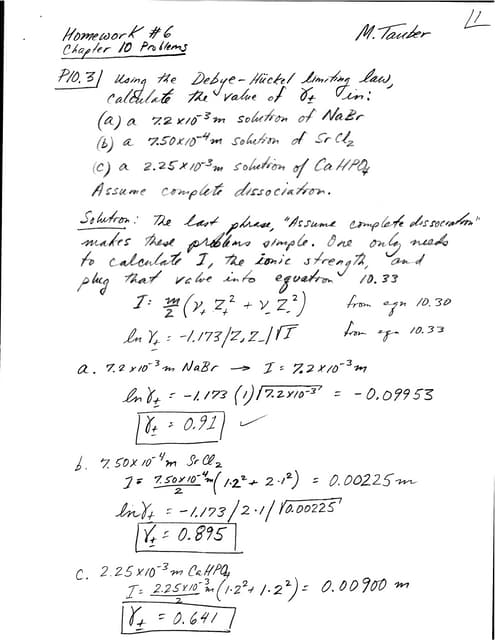 1
Homework #6
M. Tauber
Chapter 10 Problems
P10.3) Using the Debye-Hückel limiting law,
calculate the value of γ± in:
(a) a 7.2x10⁻³ m solution of NaBr
(b) a 7.50x10⁻⁴ m solution of SrCl₂
(c) a 2.25x10⁻³ m solution of CaHPO₄
Assume complete dissociation.
Solution: The last phrase, "Assume complete dissociation"
makes these problems simple. One only needs
to calculate I, the ionic strength, and
plug that value into equation 10.33
I = m/2 (ν₊ Z₊² + ν₋ Z₋²) from eqn 10.30
ln γ± = -1.173 |Z₊ Z₋| √I from eqn 10.33
a. 7.2x10⁻³ m NaBr → I = 7.2x10⁻³ m
ln γ± = -1.173 (1) √7.2x10⁻³ = -0.09953
γ± = 0.91 ✓
b. 7.50x10⁻⁴ m SrCl₂
I = 7.50x10⁻⁴ m/2 (1·2² + 2·1²) = 0.00225 m
ln γ± = -1.173 |2·1| √0.00225
γ± = 0.895
c. 2.25x10⁻³ m CaHPO₄
I = 2.25x10⁻³ m/2 (1·2² + 1·2²) = 0.00900 m
γ± = 0.641